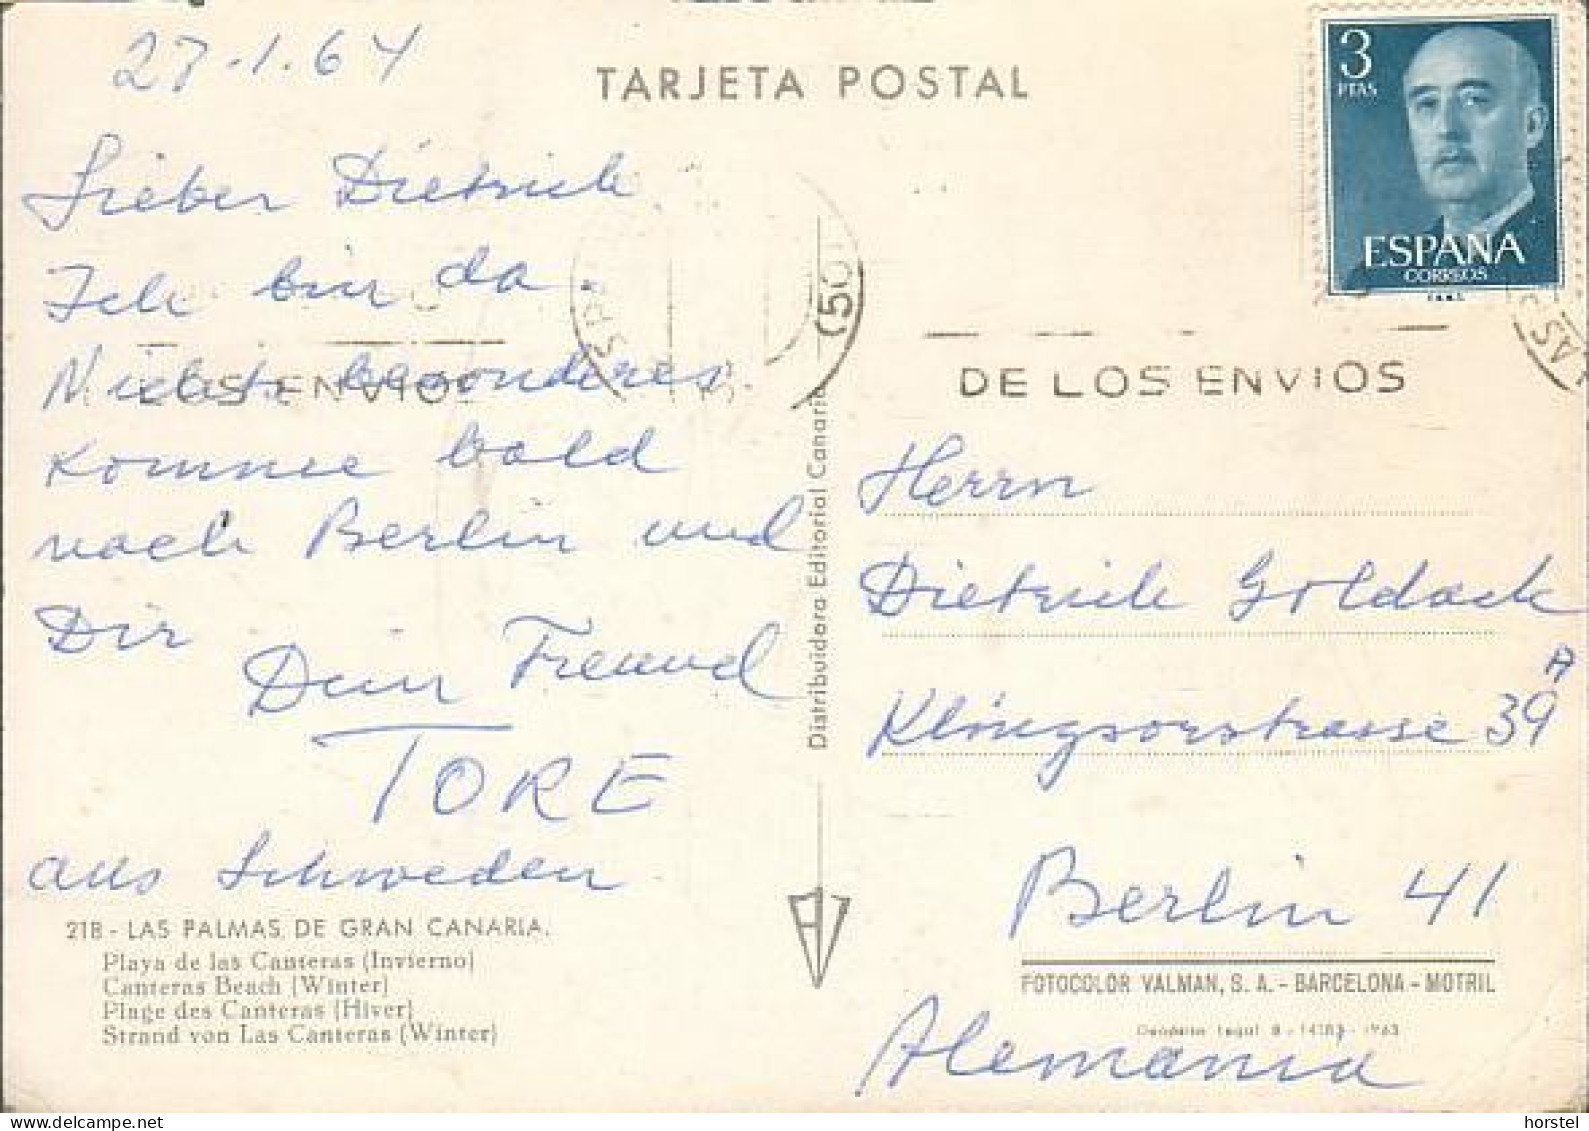 27.1.64
TARJETA POSTAL
3
PTAS
ESPAÑA
CORREOS
Lieber Dietrich
Ich bin da.
Nichts besonderes
Komme bald
nach Berlin und
Dir
Dein Freund
TORE
aus Schweden
218 - LAS PALMAS DE GRAN CANARIA.
Playa de las Canteras (Invierno)
Canteras Beach (Winter)
Plage des Canteras (Hiver)
Strand von Las Canteras (Winter)
Distribuidora Editorial Canaria
DE LOS ENVIOS
Herrn
Dietrich Goldack
Klingsorstrasse 39A
Berlin 41
FOTOCOLOR VALMAN, S. A. - BARCELONA - MOTRIL
Depósito Legal B - 1963
Alemania
horstel